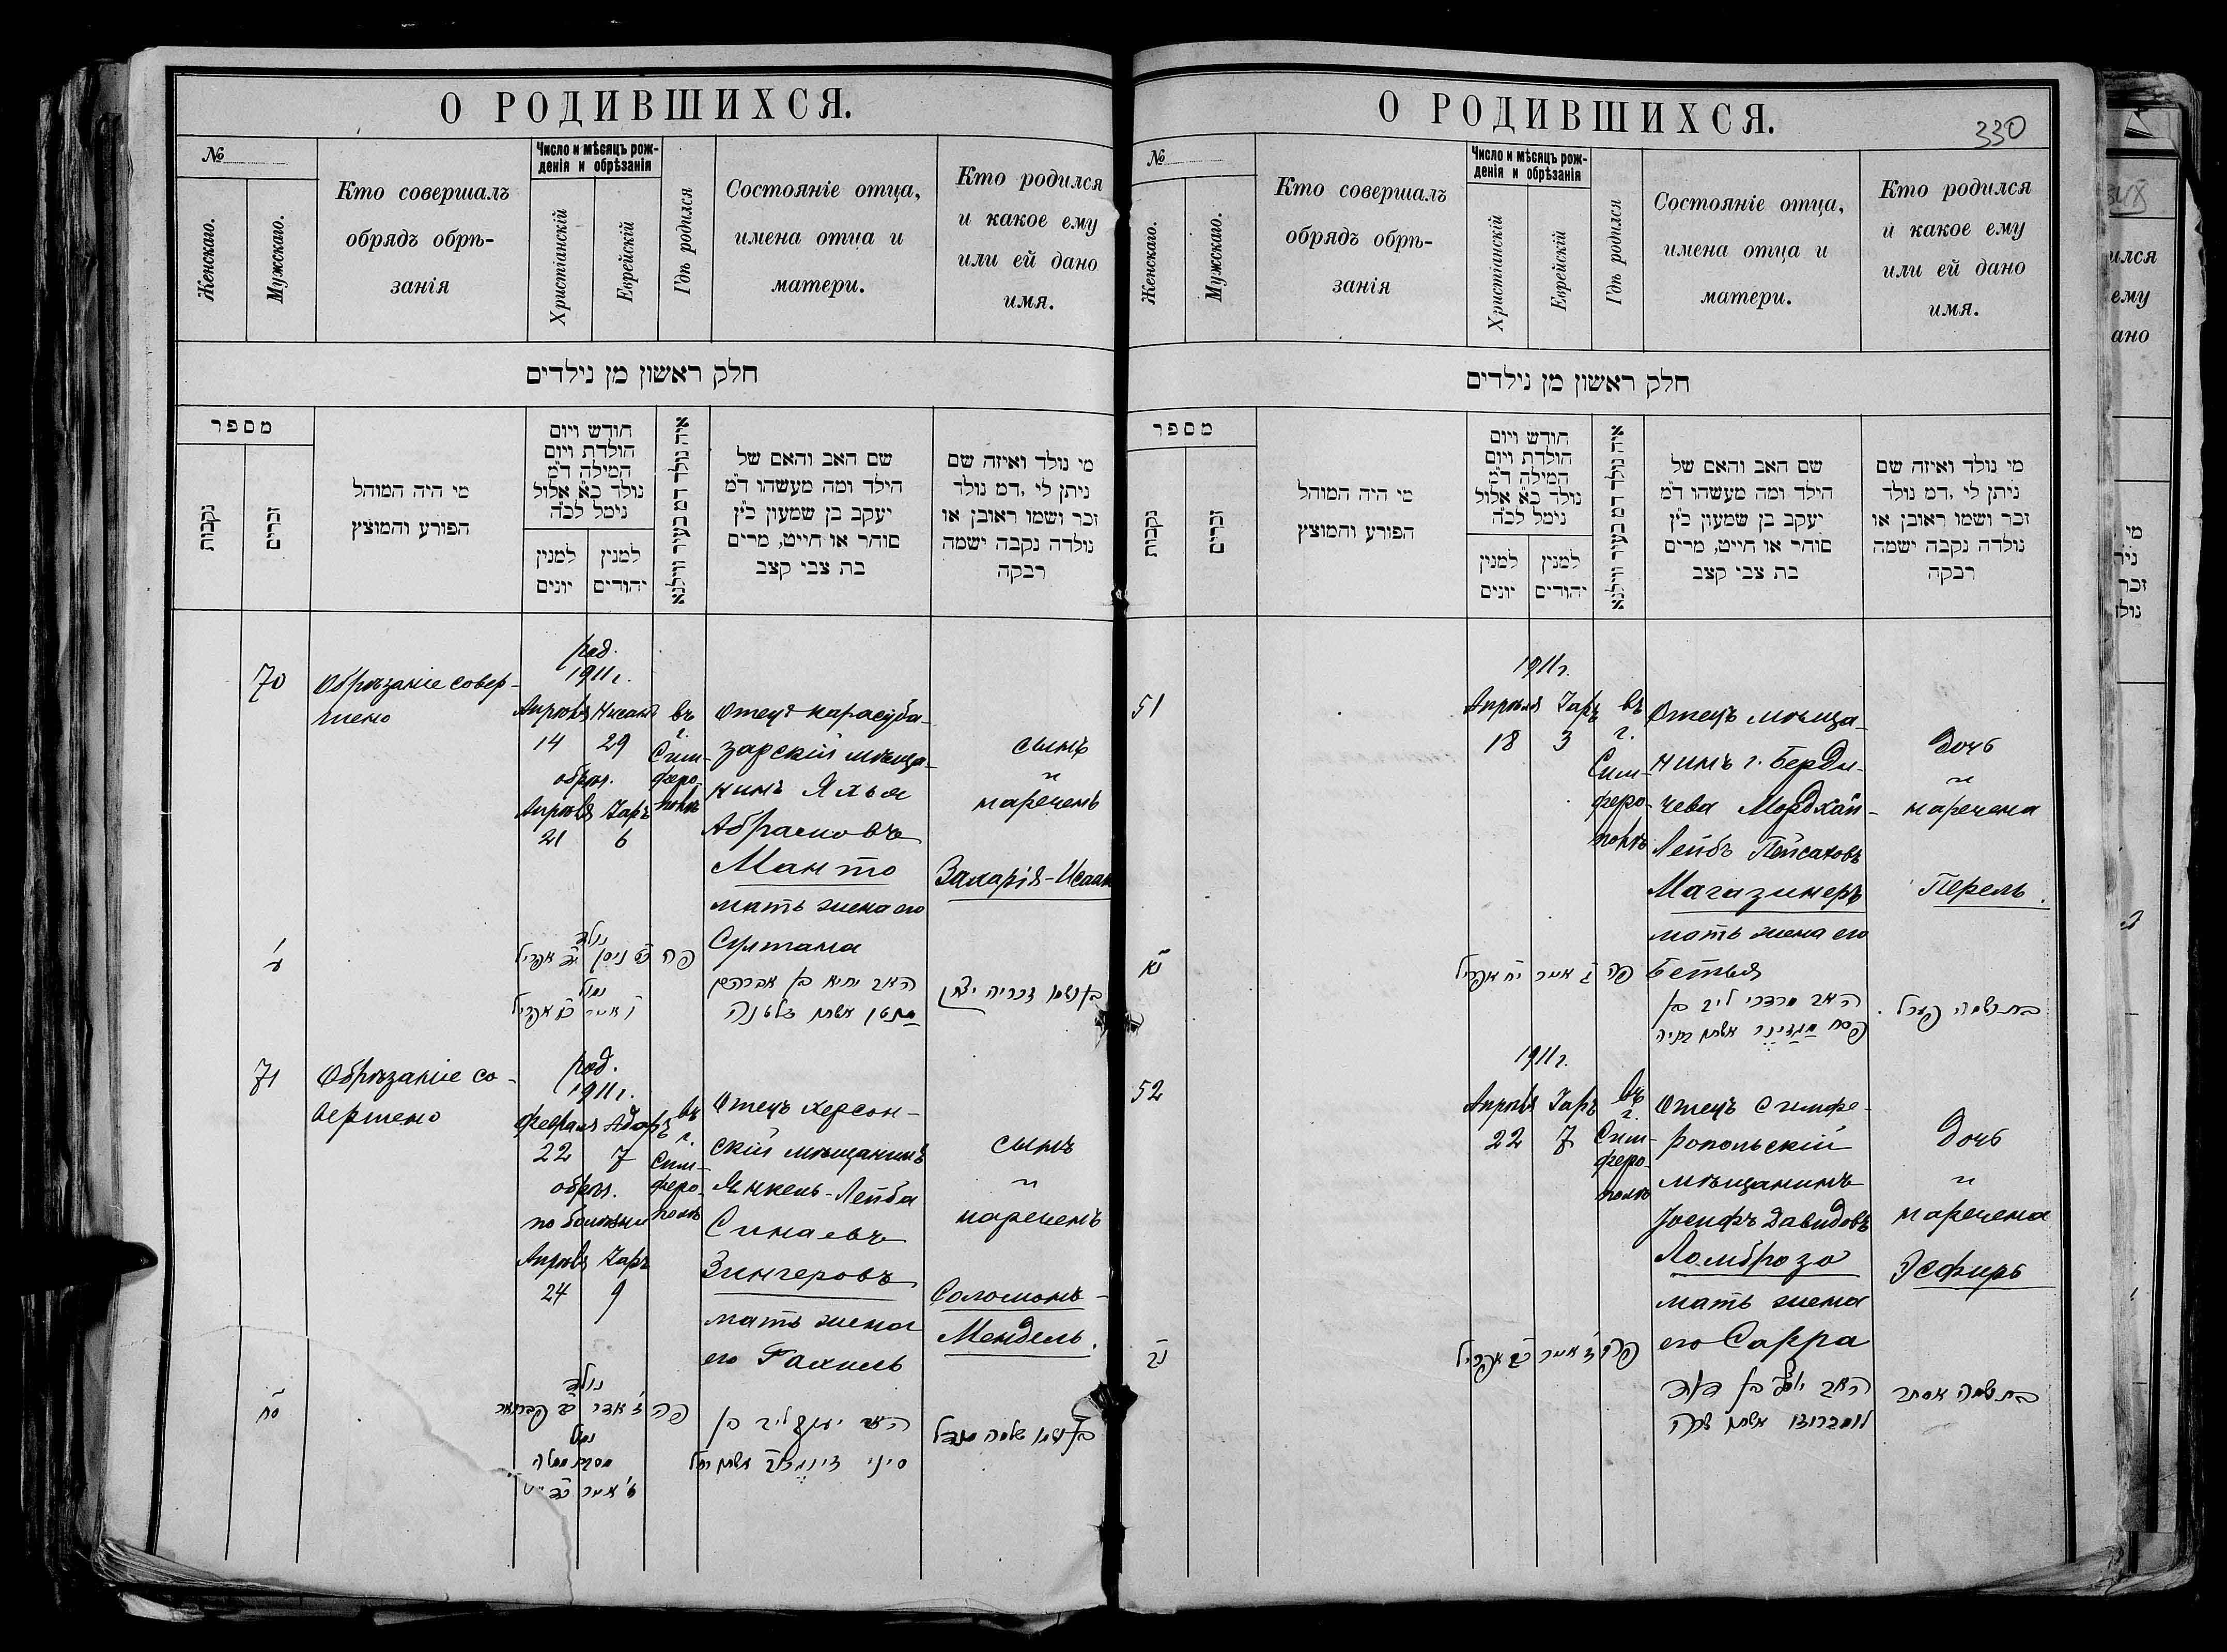 О РОДИВШИХСЯ.
№
Женскаго.
Мужскаго.
Кто совершалъ
обрядъ обрѣ-
занія
Число и мѣсяцъ рож-
денія и обрѣзанія
Христіанскій
Еврейскій
Гдѣ родился
Состояніе отца,
имена отца и
матери.
Кто родился
и какое ему
или ей дано
имя.
חלק ראשון מן נילדים
מספר
נקבות
זכרים
מי היה המוהל
הפורע והמוצץ
חודש ויום
הולדת ויום
המילה ד״מ
נולד כ״א אלול
נימל לכ״ה
למנין
יונים
למנין
יהודים
איה נולד דמ בעיר ווילנא
שם האב והאם של
הילד ומה מעשהו ד״מ
יעקב בן שמעון כ״ץ
סוחר או חייט, מרים
בת צבי קצב
מי נולד ואיזה שם
ניתן לי, דמ נולד
זכר ושמו ראובן או
נולדה נקבה ישמה
רבקה
70
Обрѣзаніе совер-
шено
род.
1911 г.
Апрѣля Нисанъ
14 29
обрѣз.
Апрѣля Іаръ
21 6
въ
г.
Сим-
феро-
полѣ
Отецъ карасуба-
зарскій мѣща-
нинъ Яхья
Абрамовъ
Манто
мать жена его
Султана
сынъ
и
нареченъ
Захарія-Исаак
ע
נולד
כט ניסן יד אפריל
נמול
ו אייר כא אפריל
פה
האב יחיא בן אברהם
מנטו אשתו סלטנה
בן ושמו זכריה יצחק
71
Обрѣзаніе со-
вершено
род.
1911 г.
Февраля Адаръ
22 7
обрѣз.
по болѣзни
Апрѣля Іаръ
24 9
въ
г.
Сим-
феро-
полѣ
Отецъ херсон-
скій мѣщанинъ
Янкель-Лейба
Синаевъ
Зингеровъ
мать жена
его Рахиль
сынъ
и
нареченъ
Соломонъ-
Мендель.
נולד
ז אדר כב פברואר
נמול
מסבת מחלה
ט אייר כד
פה
האב יעקב ליב בן
סיני זינגרוב אשתו רחל
בן ושמו שלמה מנדל
О РОДИВШИХСЯ.
330
№
Женскаго.
Мужскаго.
Кто совершалъ
обрядъ обрѣ-
занія
Число и мѣсяцъ рож-
денія и обрѣзанія
Христіанскій
Еврейскій
Гдѣ родился
Состояніе отца,
имена отца и
матери.
Кто родился
и какое ему
или ей дано
имя.
חלק ראשון מן נילדים
מספר
נקבות
זכרים
מי היה המוהל
הפורע והמוצץ
חודש ויום
הולדת ויום
המילה ד״מ
נולד כ״א אלול
נימל לכ״ה
למנין
יונים
למנין
יהודים
איה נולד דמ בעיר ווילנא
שם האב והאם של
הילד ומה מעשהו ד״מ
יעקב בן שמעון כ״ץ
סוחר או חייט, מרים
בת צבי קצב
מי נולד ואיזה שם
ניתן לי, דמ נולד
זכר ושמו ראובן או
נולדה נקבה ישמה
רבקה
51
1911 г.
Апрѣля Іаръ
18 3
въ
г.
Сим-
феро-
полѣ
Отецъ мѣща-
нинъ г. Берди-
чева Мордхай-
Лейбъ Пейсаховъ
Магазинеръ
мать жена его
Бетья
дочь
и
наречена
Перель.
נא
ג אייר יח אפריל
פה
האב מרדכי ליב בן
פסח מגזינר אשתו בתיה
בת ושמה פערל
52
1911 г.
Апрѣля Іаръ
22 7
въ
г.
Сим-
феро-
полѣ
Отецъ симфе-
ропольскій
мѣщанинъ
Іосифъ Давидовъ
Ломброзо
мать жена
его Сарра
дочь
и
наречена
Эсфирь
נב
ז אייר כב אפריל
פה
האב יוסף בן דוד
לומברוזו אשתו שרה
בת ושמה אסתר